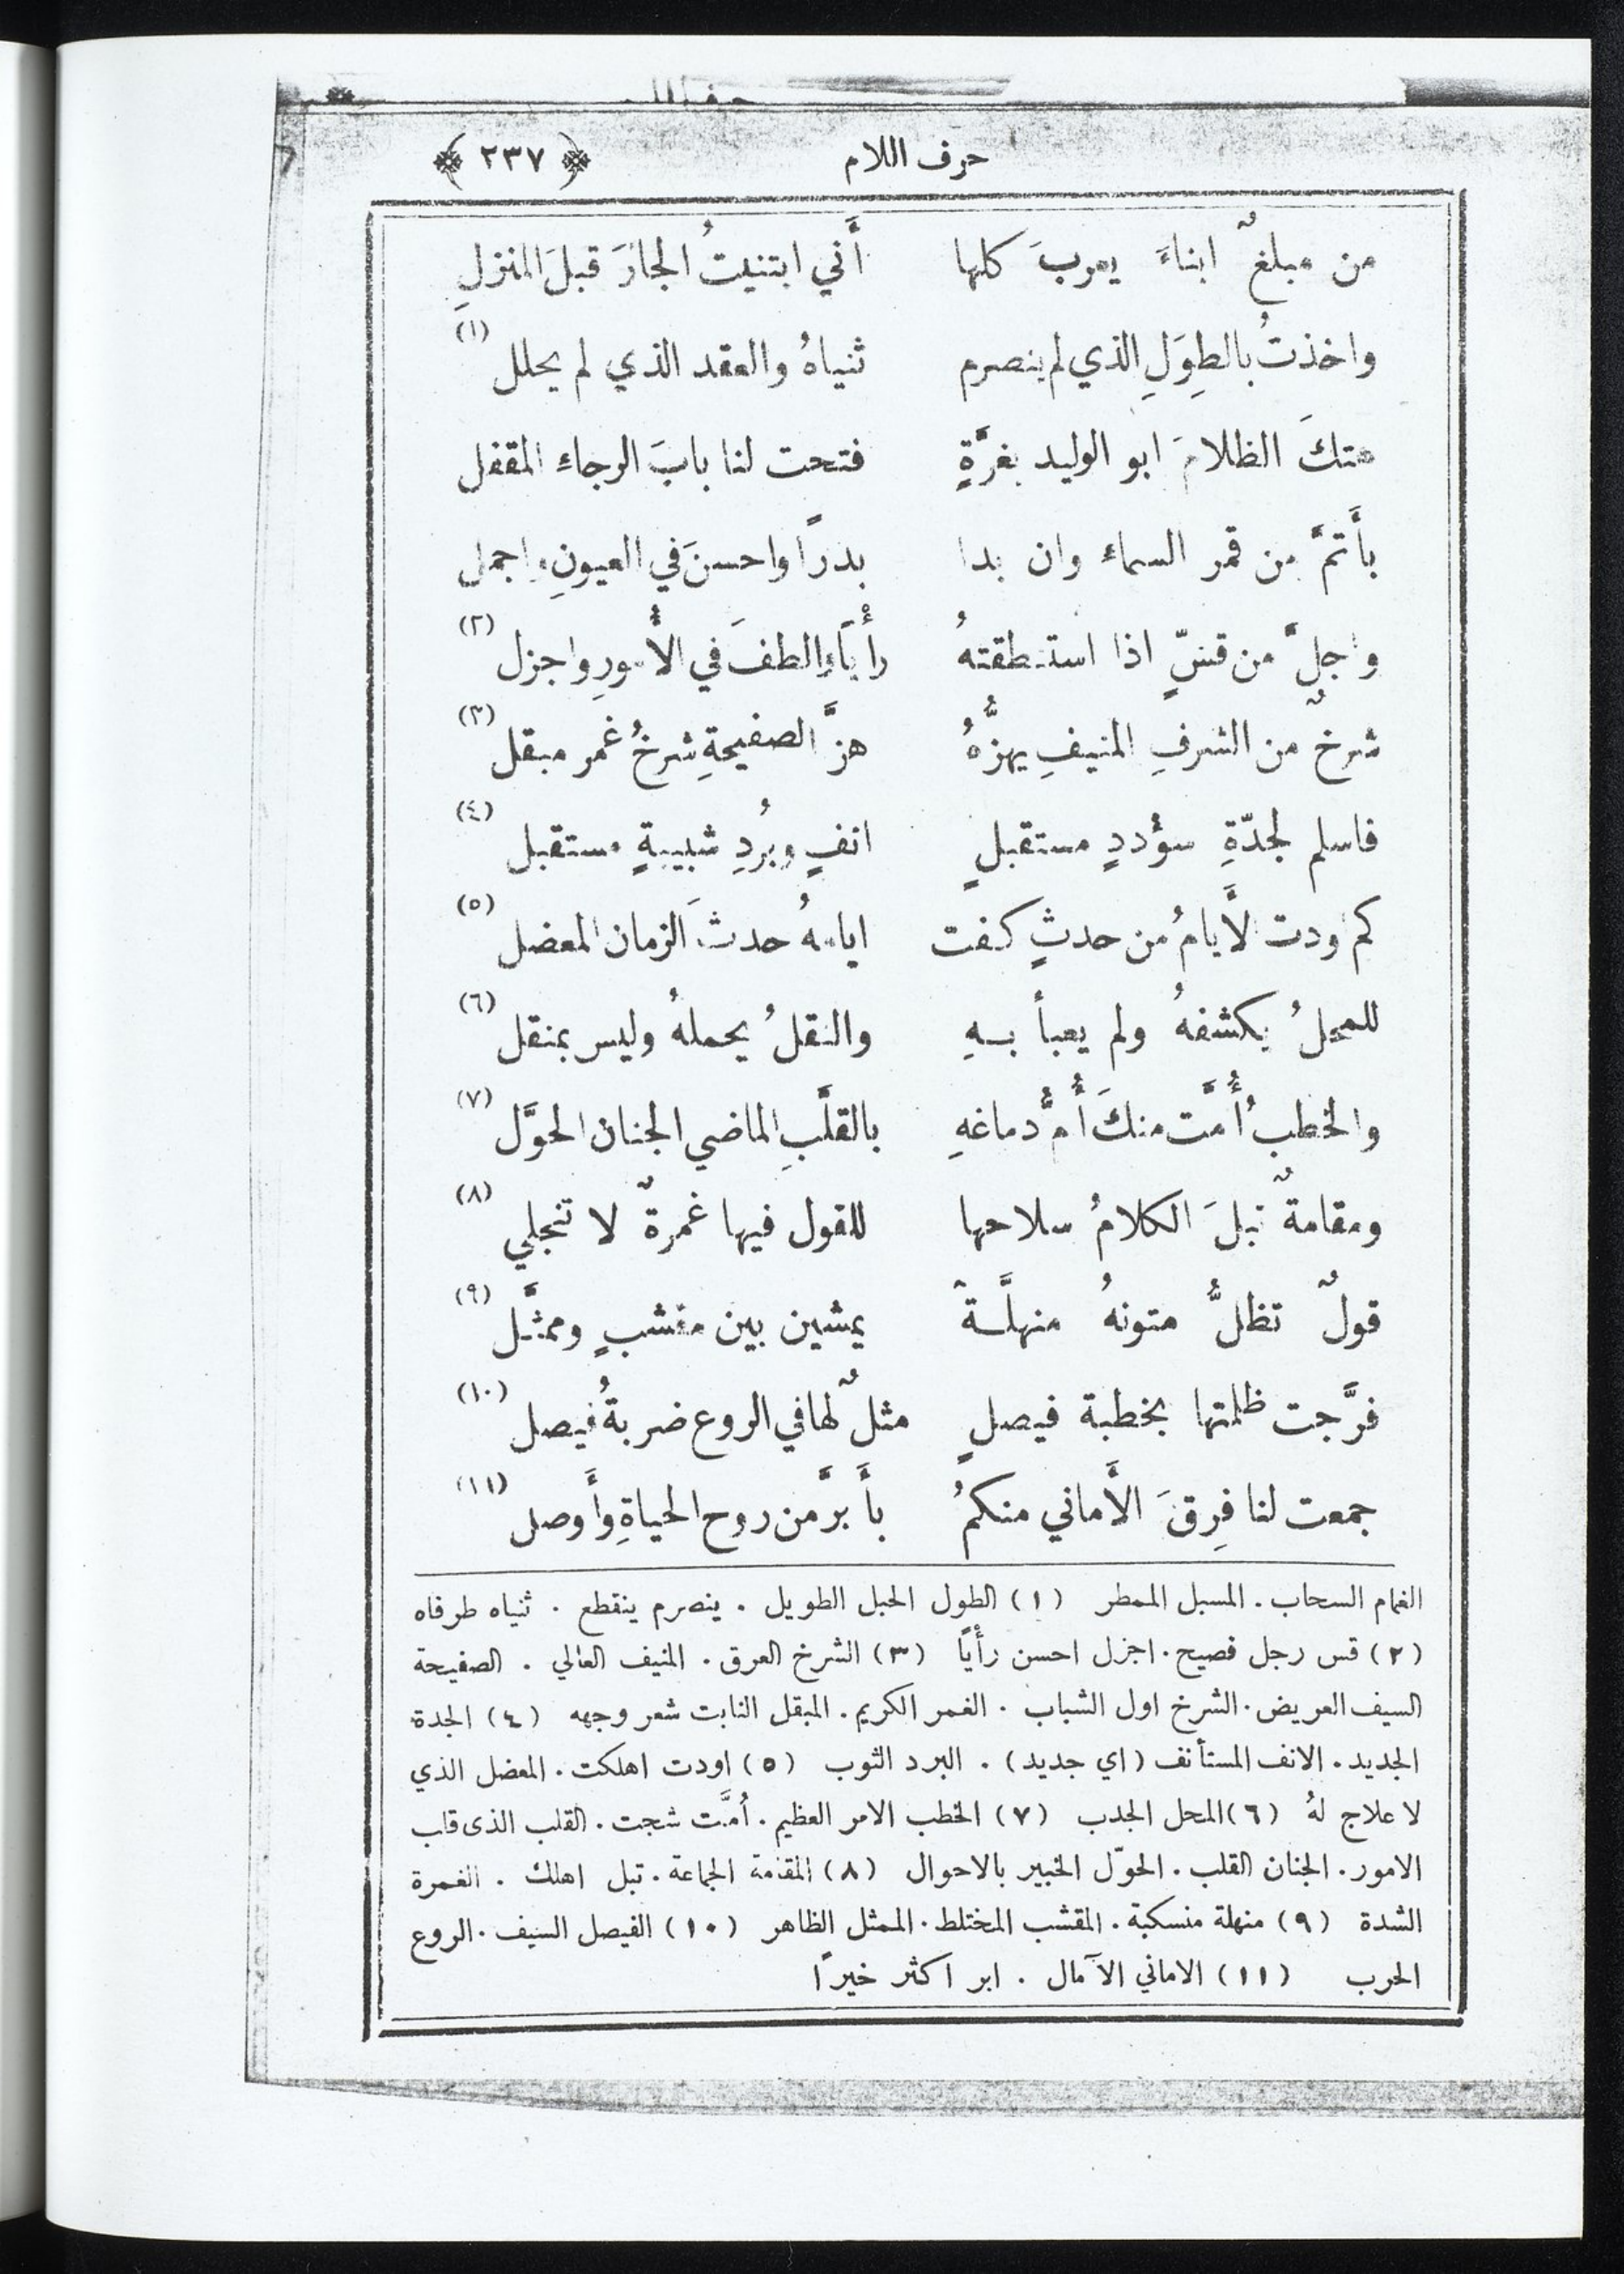 حرف اللام ﴿ ٢٣٧ ﴾
من مبلغٌ ابناءَ يعربَ كلها أَني ابتنيتُ الجارَ قبلَ المنزلِ
واخذتُ بالطِوَلِ الذي لم ينصرم ثنياهُ والعقد الذي لم يحلل (١)
هتكَ الظلامَ ابو الوليد بغرَّةٍ فتحت لنا بابَ الرجاء المقفل
بأَتمَّ من قمر السماء وان بدا بدرًا واحسنَ في العيونِ واجمل
واجلَّ من قسٍّ اذا استنطقتهُ رأْيًا والطفَ في الأُمورِ واجزل (٢)
شرخٌ من الشرفِ المنيفِ يهزُّهُ هزَّ الصفيحةِ شرخُ غمر مبقل (٣)
فاسلم لجدّةِ سؤددٍ مستقبلٍ انفٍ وبُردِ شبيبةٍ مستقبل (٤)
كم اودت الأَيامُ من حدثٍ كفت ايامهُ حدثَ الزمان المعضل (٥)
للمحلُ يكشفهُ ولم يعبأ بهِ والثقلُ يحملهُ وليس بمثقل (٦)
والخطبُ أُمَّت منكَ أُمُّ دماغهِ بالقلَّبِ الماضي الجنان الحوَّل (٧)
ومقامةٌ تبلَ الكلامُ سلاحها للقول فيها غمرةٌ لا تنجلي (٨)
قولٌ تظلُّ متونهُ منهلَّـةً يمشين بين مقشبٍ وممثَّل (٩)
فرَّجت ظلمتها بخطبة فيصلٍ مثلٌ لها في الروع ضربةُ فيصل (١٠)
جمعت لنا فِرقَ الأَماني منكمُ بأَبرَّ من روح الحياةِ وأَوصل (١١)
الغمام السحاب . المسبل الممطر (١) الطول الحبل الطويل . ينصرم ينقطع . ثنياه طرفاه
(٢) قس رجل فصيح . اجزل احسن رأْيًا (٣) الشرخ العرق . المنيف العالي . الصفيحة
السيف العريض . الشرخ اول الشباب . الغمر الكريم . المبقل النابت شعر وجهه (٤) الجدة
الجديد . الانف المستأنف (اي جديد) . البرد الثوب (٥) اودت اهلكت . المعضل الذي
لا علاج لهُ (٦) المحل الجدب (٧) الخطب الامر العظيم . أُمَّت شجت . القلب الذى قلب
الامور . الجنان القلب . الحوّل الخبير بالاحوال (٨) المقامة الجماعة . تبل اهلك . الغمرة
الشدة (٩) منهلة منسكبة . المقشب المختلط . الممثل الظاهر (١٠) الفيصل السيف . الروع
الحرب (١١) الاماني الآمال . ابر اكثر خيرًا